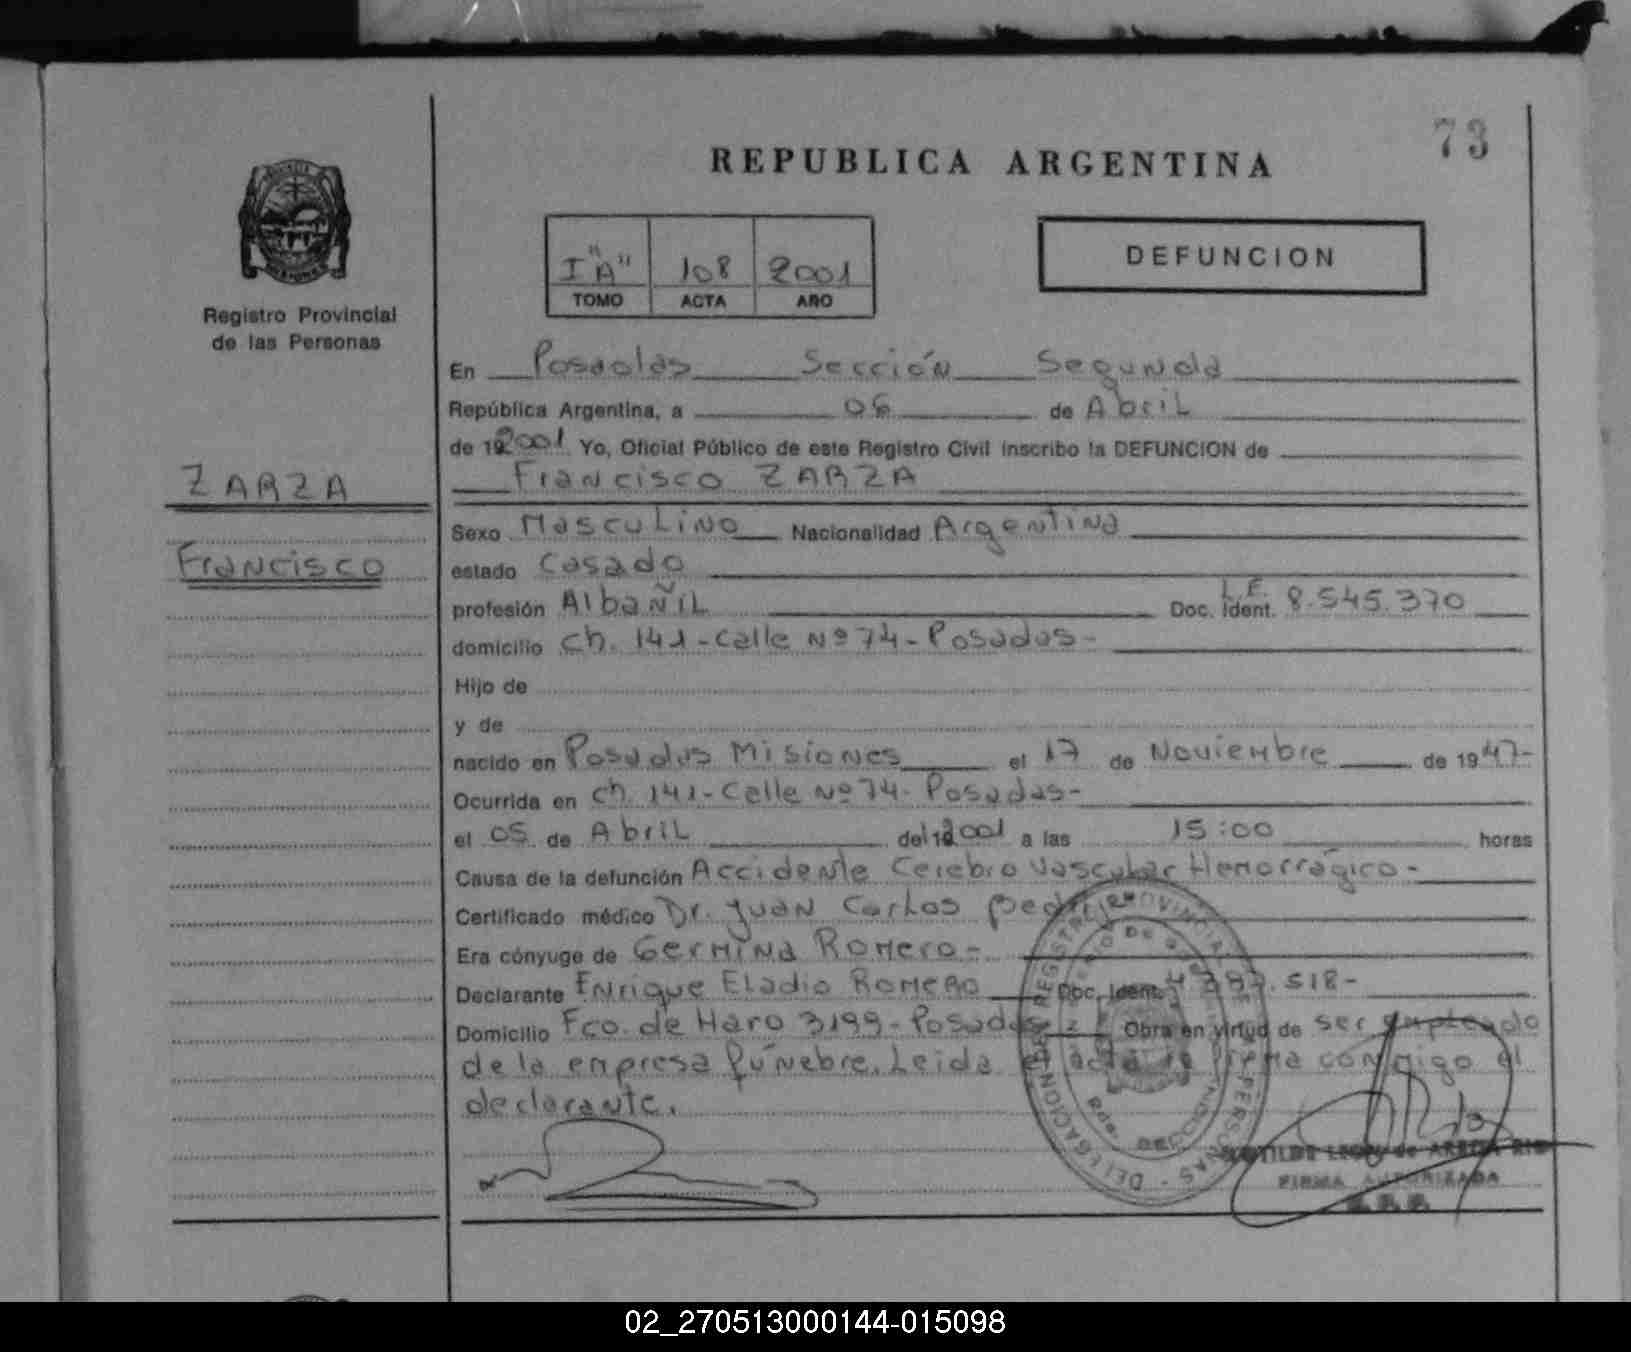 73
REPUBLICA ARGENTINA
I "A" 108 2001
TOMO ACTA AÑO
DEFUNCION
Registro Provincial
de las Personas
ZARZA
Francisco
En Posadas Sección Segunda
República Argentina, a 06 de Abril
de 192001 Yo, Oficial Público de este Registro Civil inscribo la DEFUNCION de
Francisco ZARZA
Sexo Masculino Nacionalidad Argentina
estado Casado
profesión Albañil Doc. Ident. L.E. 8.545.370
domicilio Ch. 141 - Calle Nº 74 - Posadas -
Hijo de
y de
nacido en Posadas Misiones el 17 de Noviembre de 1947-
Ocurrida en Ch. 141 - Calle Nº 74 - Posadas -
el 05 de Abril del 192001 a las 15:00 horas
Causa de la defunción Accidente Cerebro Vascular Hemorrágico -
Certificado médico Dr. Juan Carlos
Era cónyuge de Germina Romero -
Declarante Enrique Eladio Romero Doc. Ident. 518-
Domicilio Fco. de Haro 3199 - Posadas Obra en virtud de ser empleado
de la empresa fúnebre. Leida el acta la firma conmigo el
declarante.
DELEGACION DEL REGISTRO PROVINCIAL DE LAS PERSONAS
FIRMA AUTORIZADA
02_270513000144-015098